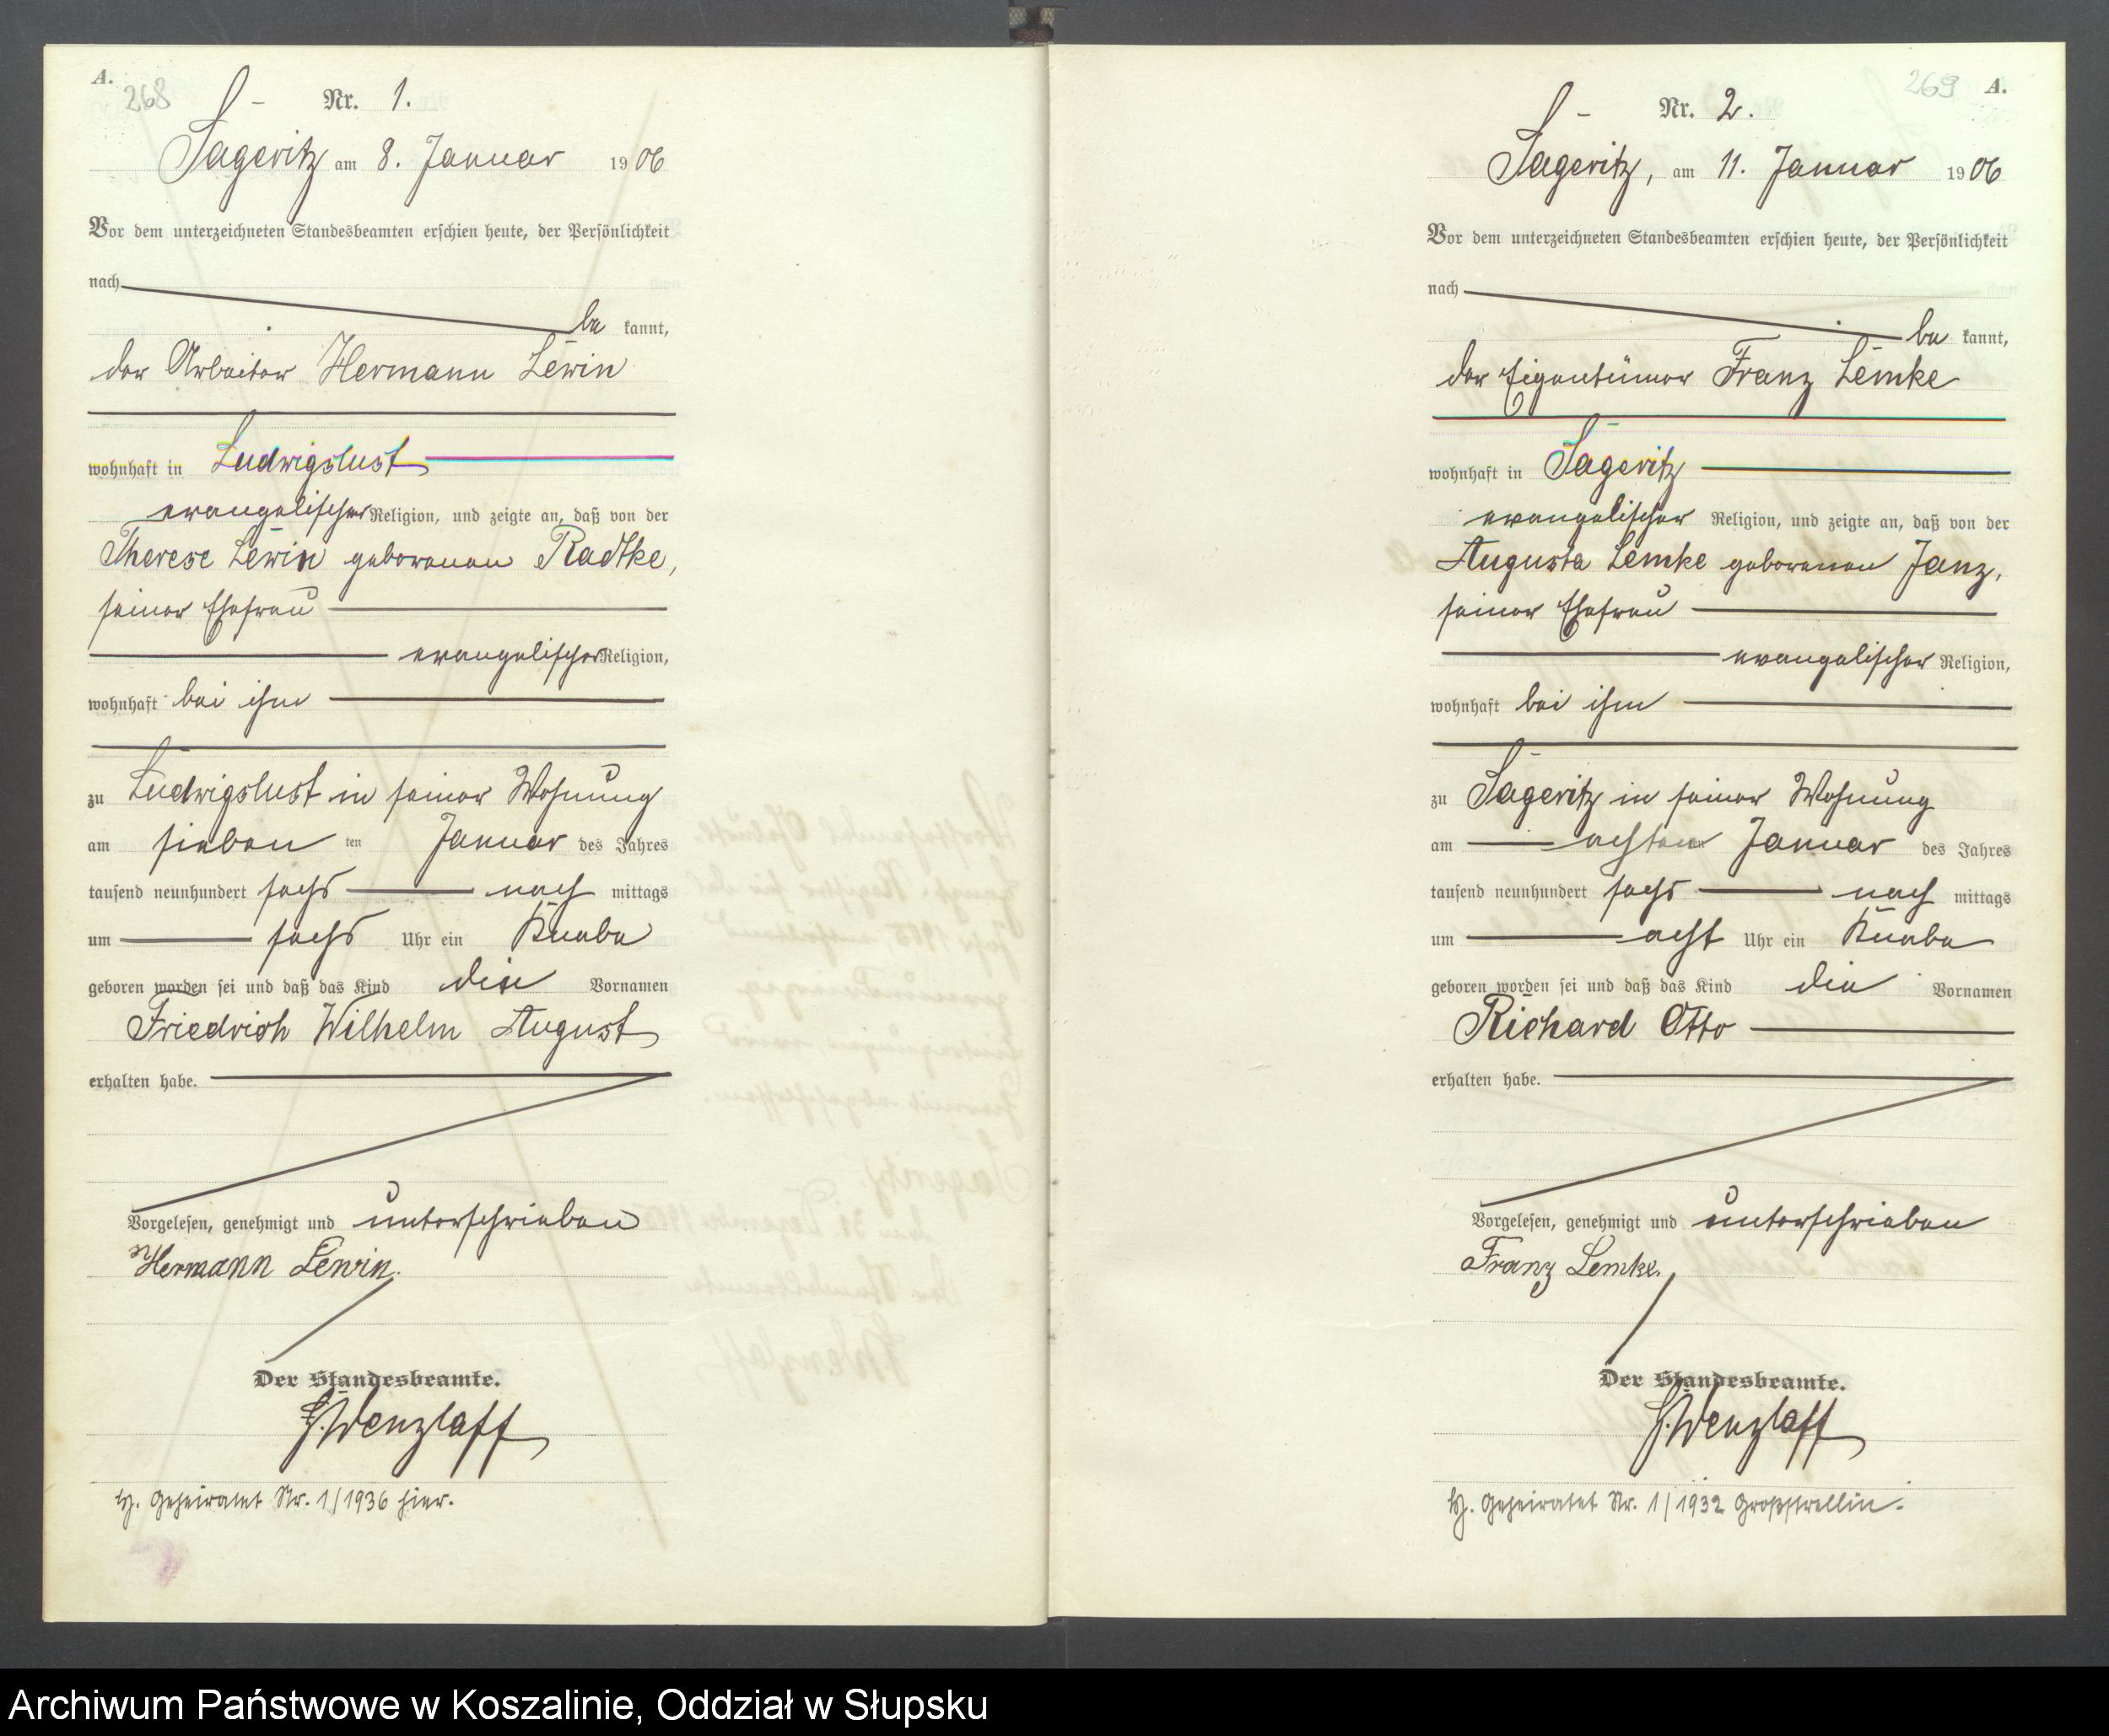 A.
268
Nr. 1.
Sageritz am 8. Januar 1906
Vor dem unterzeichneten Standesbeamten erschien heute, der Persönlichkeit
nach
be kannt,
der Arbeiter Hermann Lewin
wohnhaft in Ludwigslust
evangelischer Religion, und zeigte an, daß von der
Therese Lewin geborenen Radtke,
seiner Ehefrau
evangelischer Religion,
wohnhaft bei ihm
zu Ludwigslust in seiner Wohnung
am sieben ten Januar des Jahres
tausend neunhundert sechs nach mittags
um sechs Uhr ein Knabe
geboren worden sei und daß das Kind die Vornamen
Friedrich Wilhelm August
erhalten habe.
Vorgelesen, genehmigt und unterschrieben
Hermann Lewin.
Der Standesbeamte.
Wenzlaff
geheiratet Nr. 1/1936 hier.
269
A.
Nr. 2.
Sageritz, am 11. Januar 1906
Vor dem unterzeichneten Standesbeamten erschien heute, der Persönlichkeit
nach
be kannt,
der Eigentümer Franz Lemke
wohnhaft in Sageritz
evangelischer Religion, und zeigte an, daß von der
Augusta Lemke geborenen Janz,
seiner Ehefrau
evangelischer Religion,
wohnhaft bei ihm
zu Sageritz in seiner Wohnung
am achten Januar des Jahres
tausend neunhundert sechs nach mittags
um acht Uhr ein Knabe
geboren worden sei und daß das Kind die Vornamen
Richard Otto
erhalten habe.
Vorgelesen, genehmigt und unterschrieben
Franz Lemke.
Der Standesbeamte.
Wenzlaff
geheiratet Nr. 1/1932 Großstrellin.
Archiwum Państwowe w Koszalinie, Oddział w Słupsku